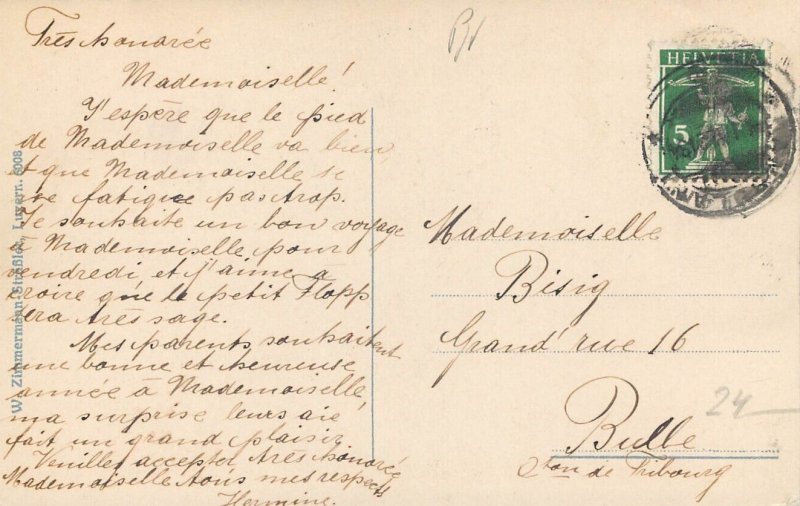 Très honorée
Mademoiselle!
J'espère que le pied
de Mademoiselle va bien
et que Mademoiselle se
ne fatigue pas trop.
Je souhaite un bon voyage
à Mademoiselle pour
vendredi et j'aime à
croire que le petit Flopp
sera très sage.
Mes parents souhaitent
une bonne et heureuse
année à Mademoiselle,
ma surprise leurs aie
fait un grand plaisir.
Veuillez accepter, très honorée
Mademoiselle tous mes respects
Hermine.
W. Zimmermann-Sträßler, Luzern. 6008
Br
HELVETIA
5
Mademoiselle
Bisig
Grand' rue 16
24
Bulle
Cton de Fribourg